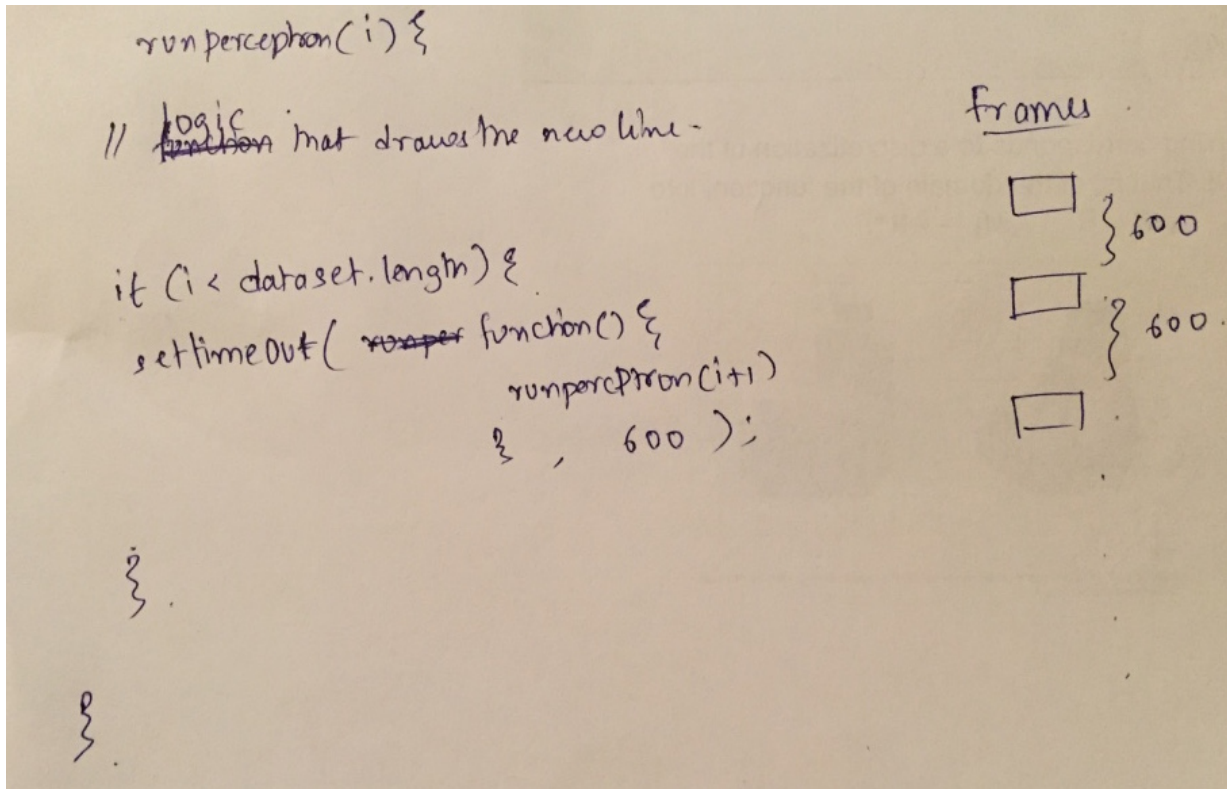 runperceptron(i){
// logic that draws the new line.
if (i < dataset.length) {
settimeout( function() {
runperceptron(i+1)
} , 600 );
}
}
frames
} 600
} 600